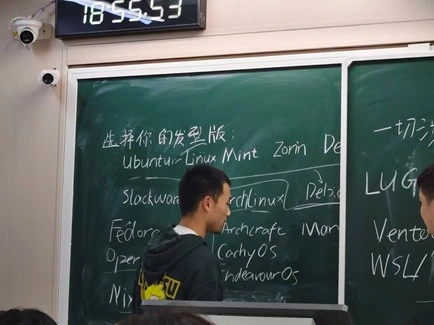 18:55:53
选择你的发行版：
Ubuntu Linux Mint Zorin De
Slackwar rchLinux Debia
Fedora Archcraft Man
Open CachyOS
Nix EndeavourOS
一切
LUG
Vento
WSL